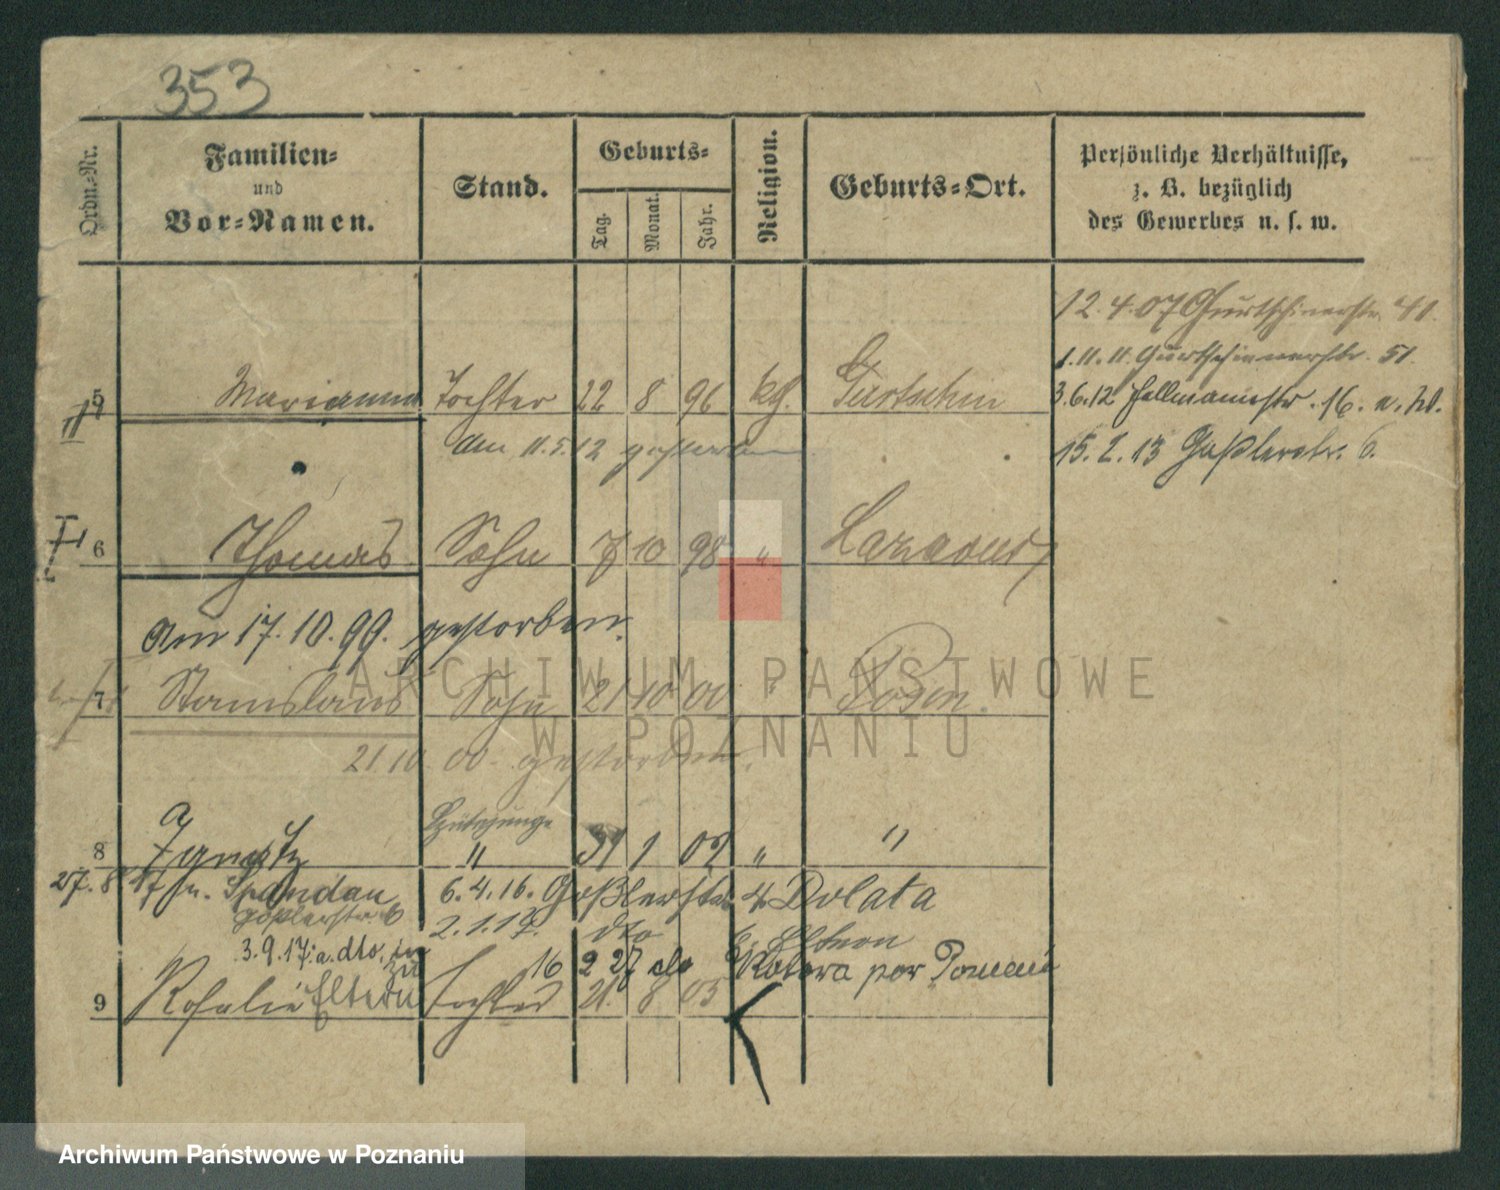 353
Ordn.-Nr.
Familien-
und
Vor-Namen.
Stand.
Geburts-
Tag.
Monat.
Jahr.
Religion.
Geburts-Ort.
Persönliche Verhältnisse,
z. B. bezüglich
des Gewerbes u. s. w.
12.4.07 Gurtschinerstr. 41.
1.11.11. Gurtschinerstr. 51.
5 Marianna Tochter 22 8 96 kth. Gurtschin
3.6.12. 16.
am 11.5.12 gestorben
15.2.13 Goßlerstr. 6.
6 Thomas Sohn 7 10 98 "
am 17.10.99. gestorben.
7 Stanislaus Sohn 21 10 00 " Posen.
21 10. 00. gestorben.
8 Ignatz " 31 1 02 " "
27.8.17 n. Spandau 6.4.16. Goßlerstr. 4 Dolata
Goßlerstr. 6 2.1.17. dto
3.9.17: a. dto, zu Eltern
16 2 27
9 Rosalie Eltern Tochter 21. 8 05
ARCHIWUM PAŃSTWOWE
W POZNANIU
Archiwum Państwowe w Poznaniu